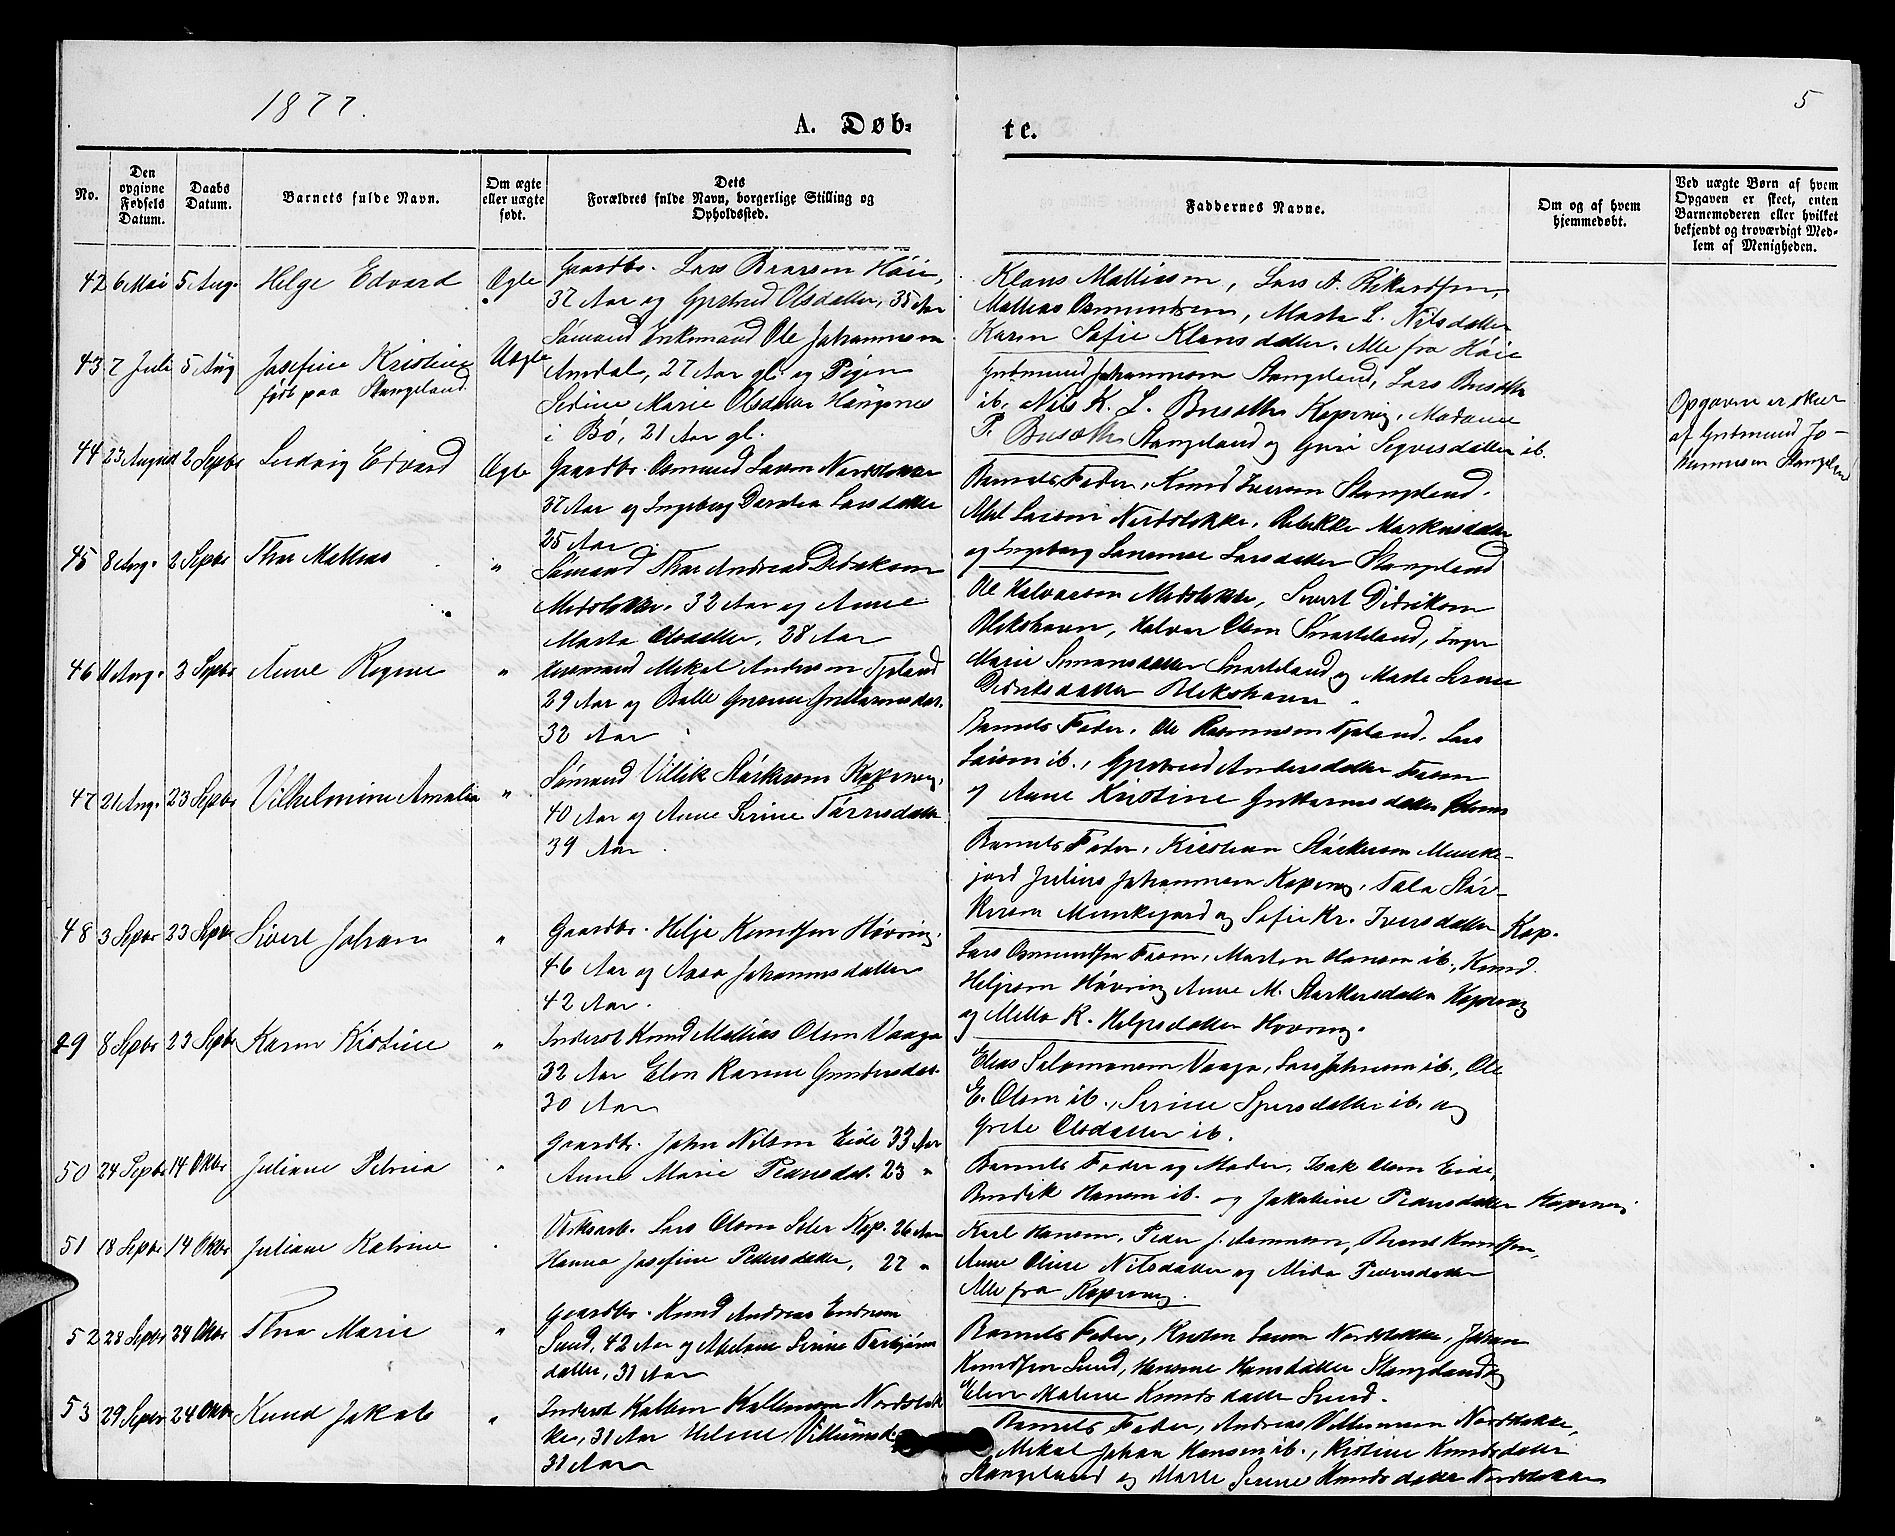 1877.
5
A. Døb-
te.
No.
Den opgivne Fødsels Datum.
Daabs Datum.
Barnets fulde Navn.
Om ægte eller uægte født.
Dets
Forældres fulde Navn, borgerlige Stilling og Opholdssted.
Faddernes Navne.
Om og af hvem hjemmedøbt.
Ved uægte Børn af hvem Opgaven er skeet, enten Barnemoderen eller hvilket bekjendt og troværdigt Medlem af Menigheden.
42 6 Mai 5 Aug. Helge Edvard Ægte
Gaardbr. Lars Høie,
37 Aar og Olsdatter, 35 Aar
Klaus Mathiesen, Lars A. Rikardsen,
Mathias Osmundsen, Marta L. Nilsdatter
Karen Sofie Klausdatter. Alle fra Høie
43 7 Juli 5 Aug Josefine Kristine Uægte
født paa Stangeland
Sømand Enkemand Ole Johannesen
Amdal, 27 Aar gl. og Pigen
Serine Marie Olsdatter
i Bø, 21 Aar gl.
Gudmund Johannesen Stangeland, Lars
ib., Nils K. L. Kopervig, Madame
P. Stangeland og Guri ib.
Opgaven er skeet
af Gudmund Jo-
hannesen Stangeland
44 23 August 2 Septbr Ludvig Edvard Ægte
Gaardbr. Osmund Larsen Nordstokke
37 Aar og Ingeborg Dorthea Larsdatter
35 Aar
Barnets Fader, Knud Iversen Stangeland.
Nordstokke, Rebekke Markusdatter
og Ingeborg Larsdatter Stangeland
45 8 Aug. 2 Septbr Thor Mathias "
Sømand Thor Andreas Didriksen
Medstokke, 32 Aar og Anne
Marta Olsdatter, 28 Aar
Ole Halvorsen Medstokke, Sivert Didriksen
Blikshavn, Halvor Olsen Snarteland, Inger
Marie Simonsdatter Snarteland og Marte Serine
Didriksdatter Blikshavn
46 11 Aug. 3 Septbr Anne Regine "
Husmand Mikal Andersen Tjøland
29 Aar og Guttormsdat.
32 Aar
Barnets Fader, Ole Rasmussen Tjøland, Lars
ib., Andersdatter
og Anne Kristine Guttormsdatter
47 21 Aug. 23 Septbr Vilhelmine Amalia "
Sømand Villik Størkersen Kopervig,
40 Aar og Anne Serine
39 Aar
Barnets Fader, Kristian Størkersen Munke-
jord Julius Johannesen Kopervig, Tala Stør-
kersen Munkejord og Sofie Kr. Iversdatter Kop.
48 3 Septbr 23 Septbr Sivert Johan "
Gaardbr. Helje Knudsen Høvring,
46 Aar og Johannesdatter
42 Aar.
Lars Osmundsen, Morten Hansen ib., Knud
Heljesen Høvring Anne M. Størkersdatter Kopervig
og Mette K. Heljesdatter Høvring.
49 8 Septbr 23 Septbr Karen Kristine "
Inderst Knud Mathias Olsen Vaage
32 Aar Elen Karine Gundersdat.
30 Aar
Elias Salomonsen Vaage, Lars Johnsen ib., Ole
E. Olsen ib., Serine ib. og
Grete Olsdatter ib.
50 24 Septbr 14 Oktbr Juliane Petrea "
Gaardbr. John Nilsen Eide 33 Aar
Anne Marie Pedersdat. 23 "
Barnets Fader og Moder, Isak Olsen Eide,
Hansen ib. og Jakobine Pedersdatter Kopervig
51 18 Septbr 14 Oktbr Juliane Katrine "
Lars Olsen Kop. 26 Aar
Hanna Josefine Pedersdatter, 27 "
Karl Hansen, Peder J., Knudsen,
Anne Oline Nilsdatter og Pedersdatter
Alle fra Kopervig.
52 28 Septbr 24 Oktbr Thea Marie "
Gaardbr. Knud Andreas Endresen
Sund, 42 Aar og Serine Torbjørns
datter, 31 Aar
Barnets Fader, Larsen Nordstokke, Johan
Knudsen Sund, Hansdatter Stangeland og
Elen Malene Knudsdatter Sund.
53 29 Septbr 24 Oktbr Knud Jakob "
Inderst Nordstok
ke, 31 Aar Helene
31 Aar
Barnets Fader, Andreas Nordstokke,
Mikal Johan Hansen ib., Kristine Knudsdatter
Stangeland og Marte Serine Knudsdatter Nordstokke